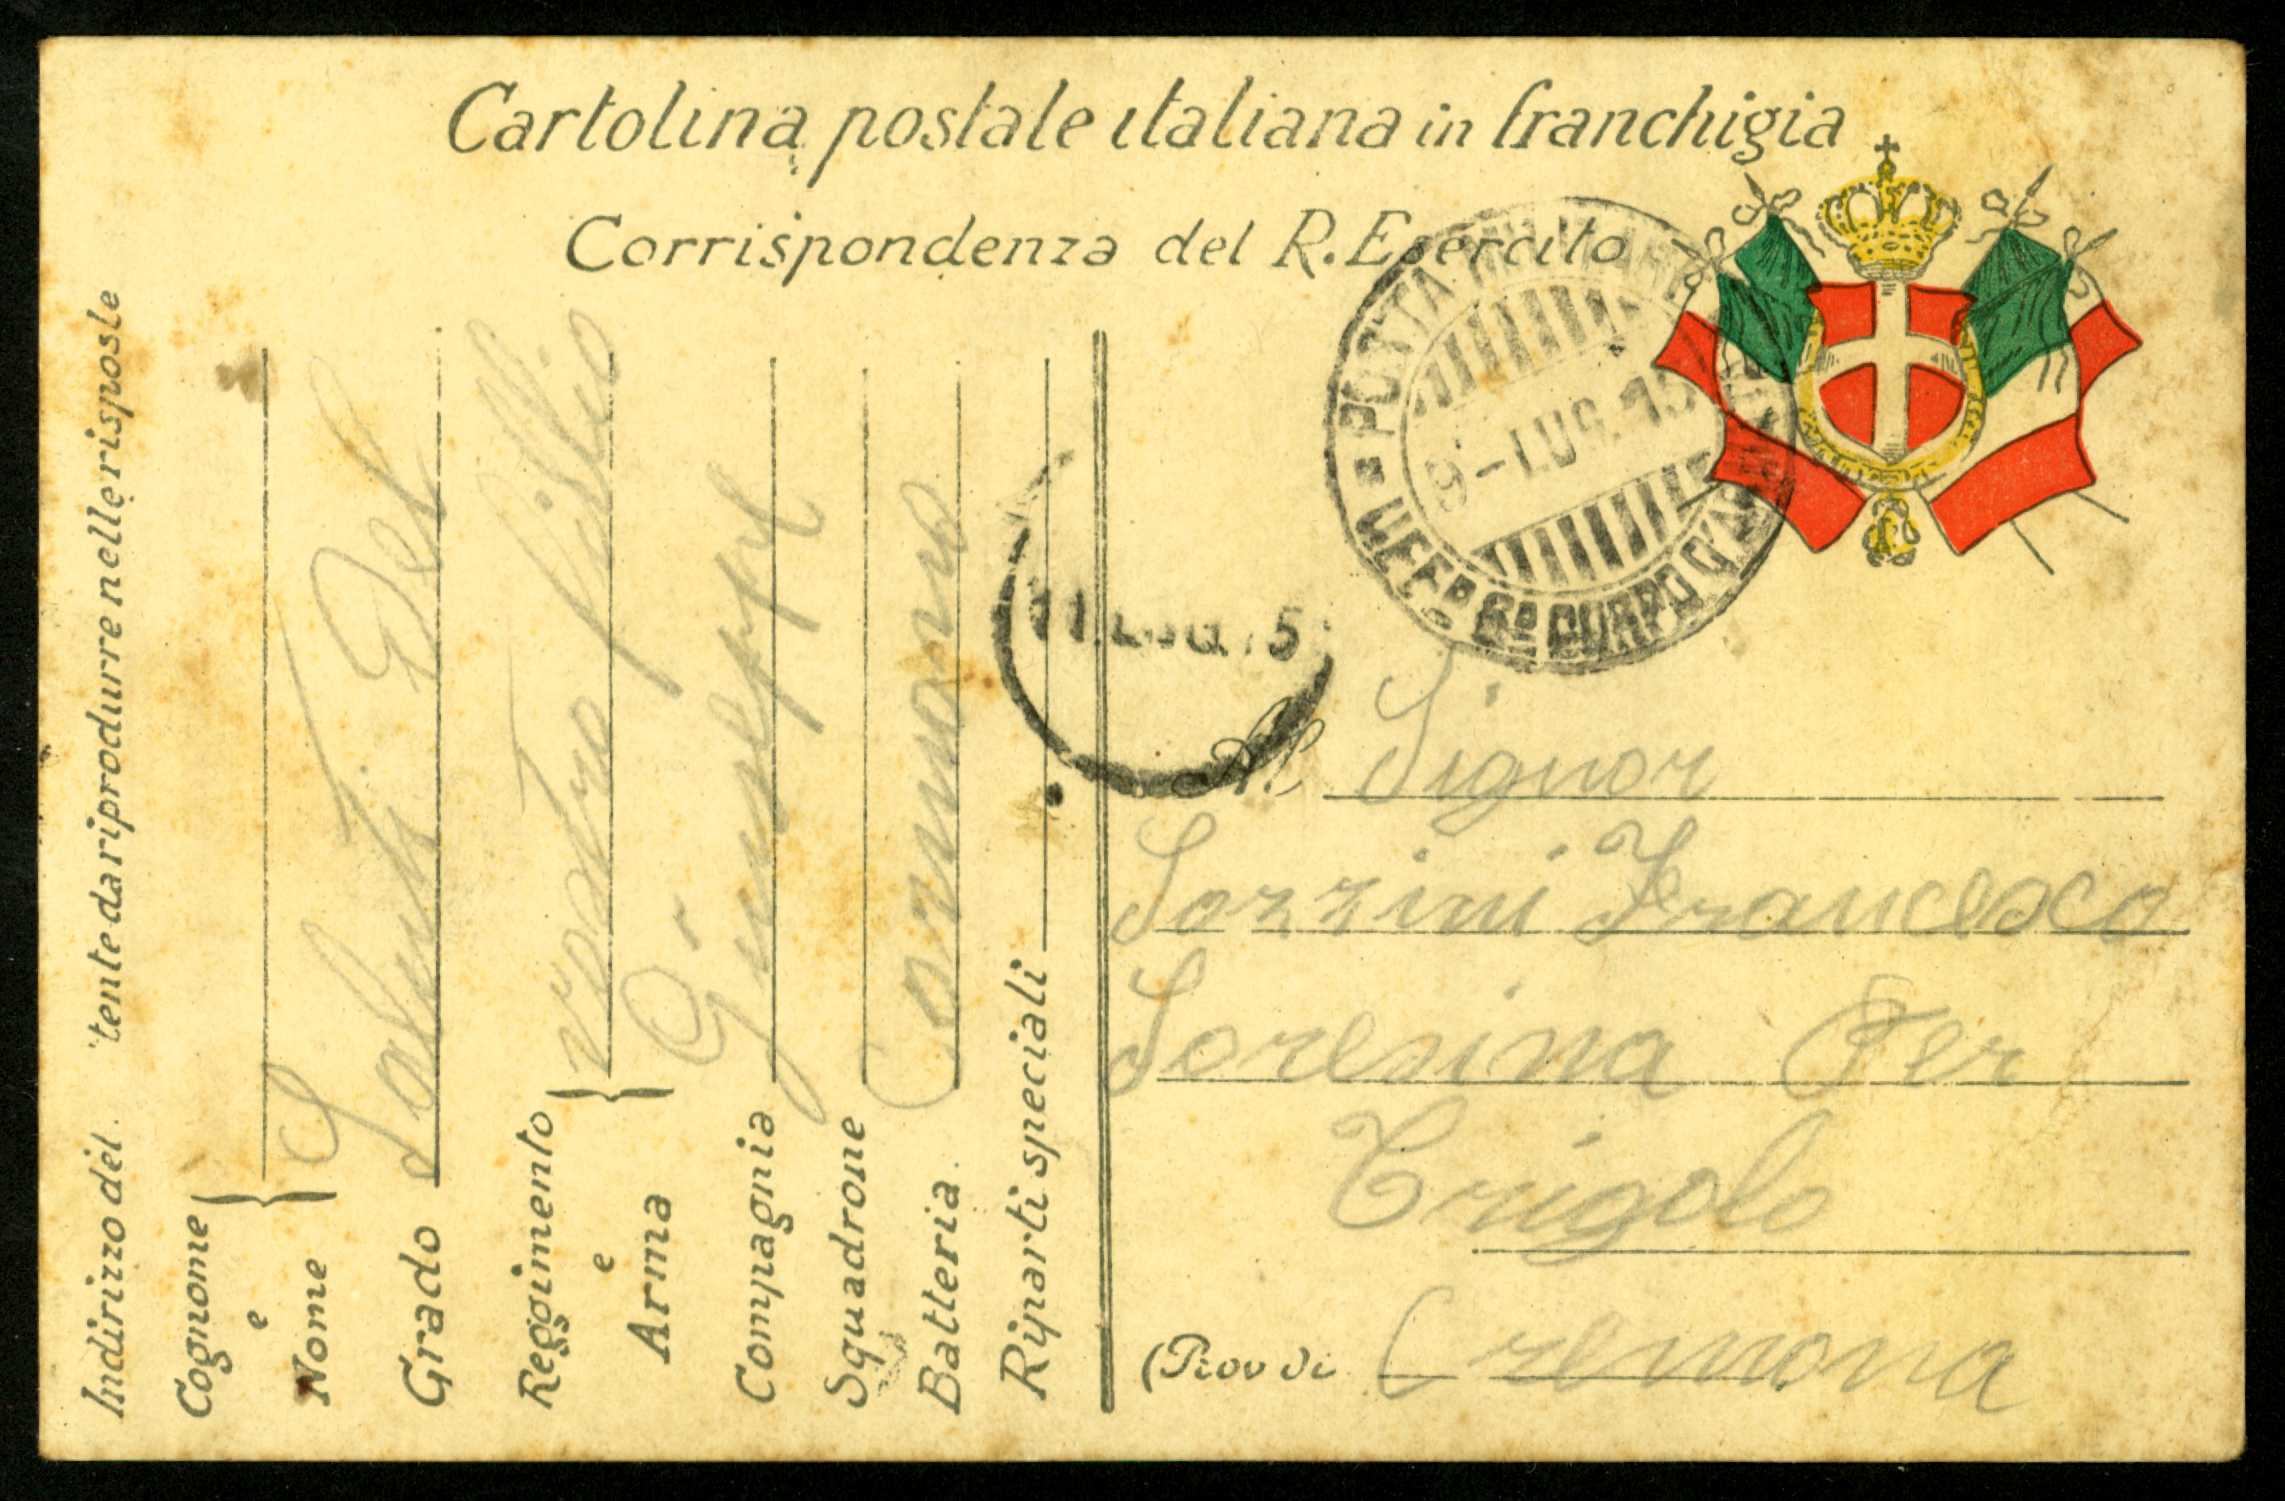 Cartolina postale italiana in franchigia
Corrispondenza del R. Esercito
POSTA MILITARE
9-LUG.15
UFF° 6° CORPO D'ARMATA
11.LUG.15
Indirizzo del tente da riprodurre nelle risposte
Cognome
e
Nome
Grado
Saluti Dal
Reggimento
e
Arma
vostro figlio
Compagnia
Giuseppe
Squadrone
Batteria
Cormano
Riparti speciali
Al Signor
Sozzini Francesco
Soresina Per
Trigolo
(Prov di Cremona